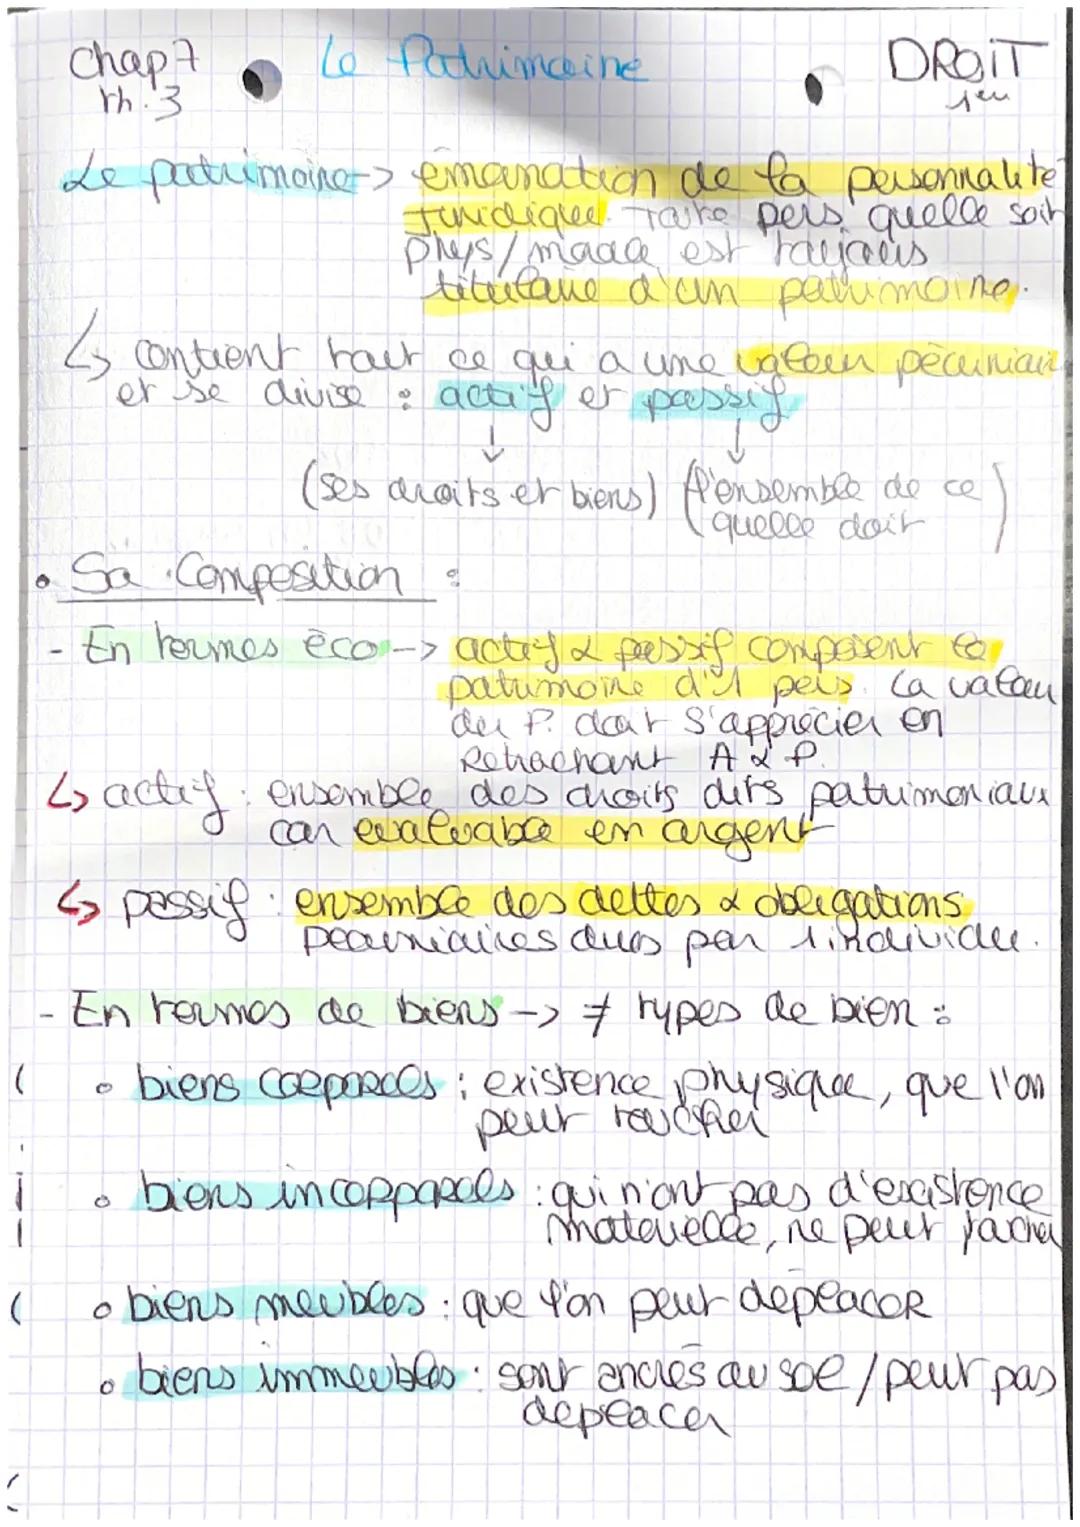 Chap 7 Le Patrimoine DROIT
th. 3
Le patrimoine -> émanation de la personnalité
juridique. Toute pers quelle soit
phys/morale est toujours
titulaire d'un patrimoine.
↳ contient tout ce qui a une valeur pécuniair
et se divise : actif et passif
(ses droits et biens) (l'ensemble de ce
quelle doit)
• Sa Composition :
- En termes éco -> actif & passif composent le
patrimoine d'1 pers. La valeur
du P. doit s'apprécier en
Retrachant A & P.
↳ actif : ensemble des droits dits patrimoniaux
car evaluable en argent
↳ passif : ensemble des dettes & obligations
pécuniaires dues par l'individu.
- En termes de biens -> ≠ types de bien :
• biens corporels : existence physique, que l'on
peut toucher
• biens incorporels : qui n'ont pas d'existence
materielle, ne peut
• biens meubles : que l'on peut déplacer
• biens immeubles : sont ancrés au sol / peut pas
déplacer